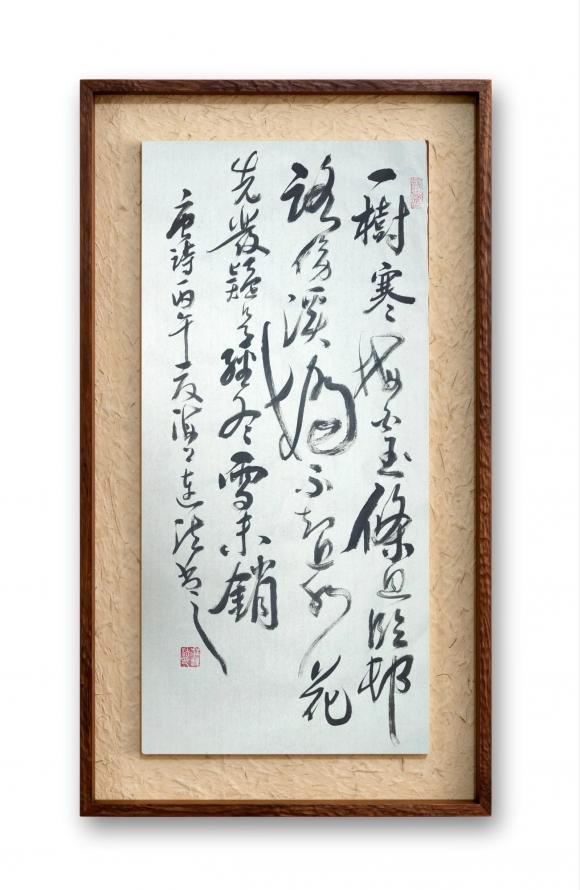 一樹寒梅白玉條迥臨邨
路傍溪橋不知近水花
先發疑是經冬雪未銷
唐詩丙午夏海上連書之